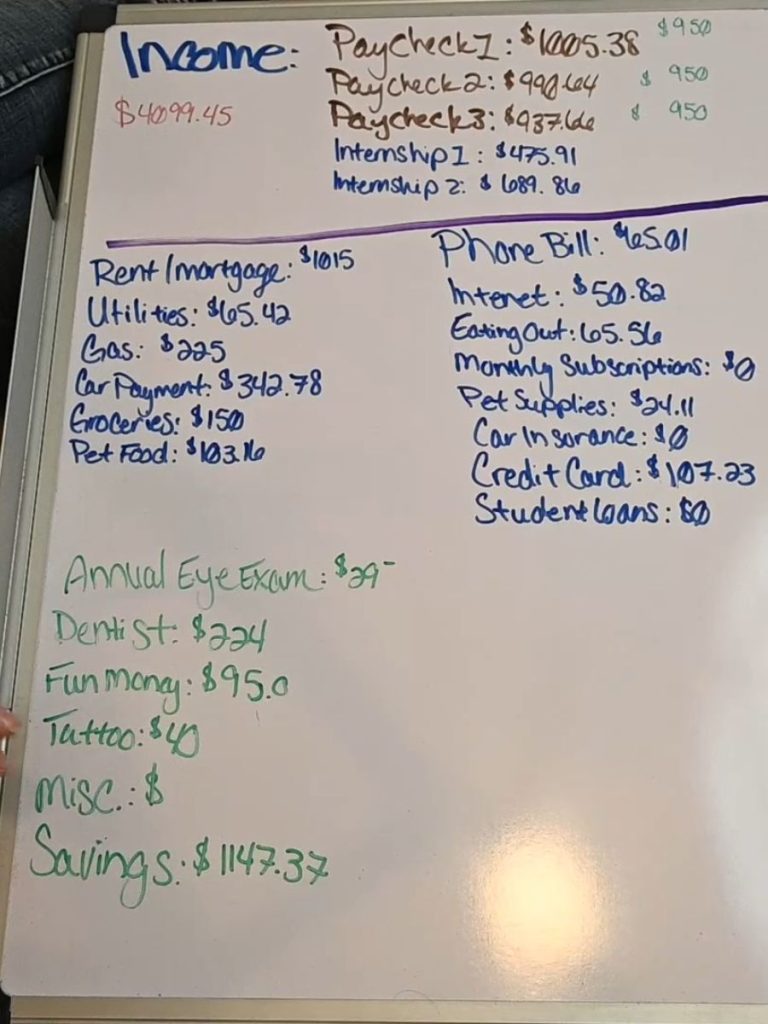 Income:
$4099.45
Paycheck 1: $1005.38 $950
Paycheck 2: $990.64 $ 950
Paycheck 3: $937.66 $ 950
Internship 1: $475.91
Internship 2: $ 689.86
Rent/mortgage: $1015
Utilities: $65.42
Gas: $225
Car Payment: $342.78
Groceries: $150
Pet Food: $103.16
Phone Bill: $65.01
Intenet: $50.82
Eating Out: 65.56
Monthly Subscriptions: $0
Pet Supplies: $24.11
Car Insurance: $0
Credit Card: $107.23
Student loans: $0
Annual Eye Exam: $29-
Dentist: $224
Fun money: $95.0
Tattoo: $40
Misc.: $
Savings: $1147.37